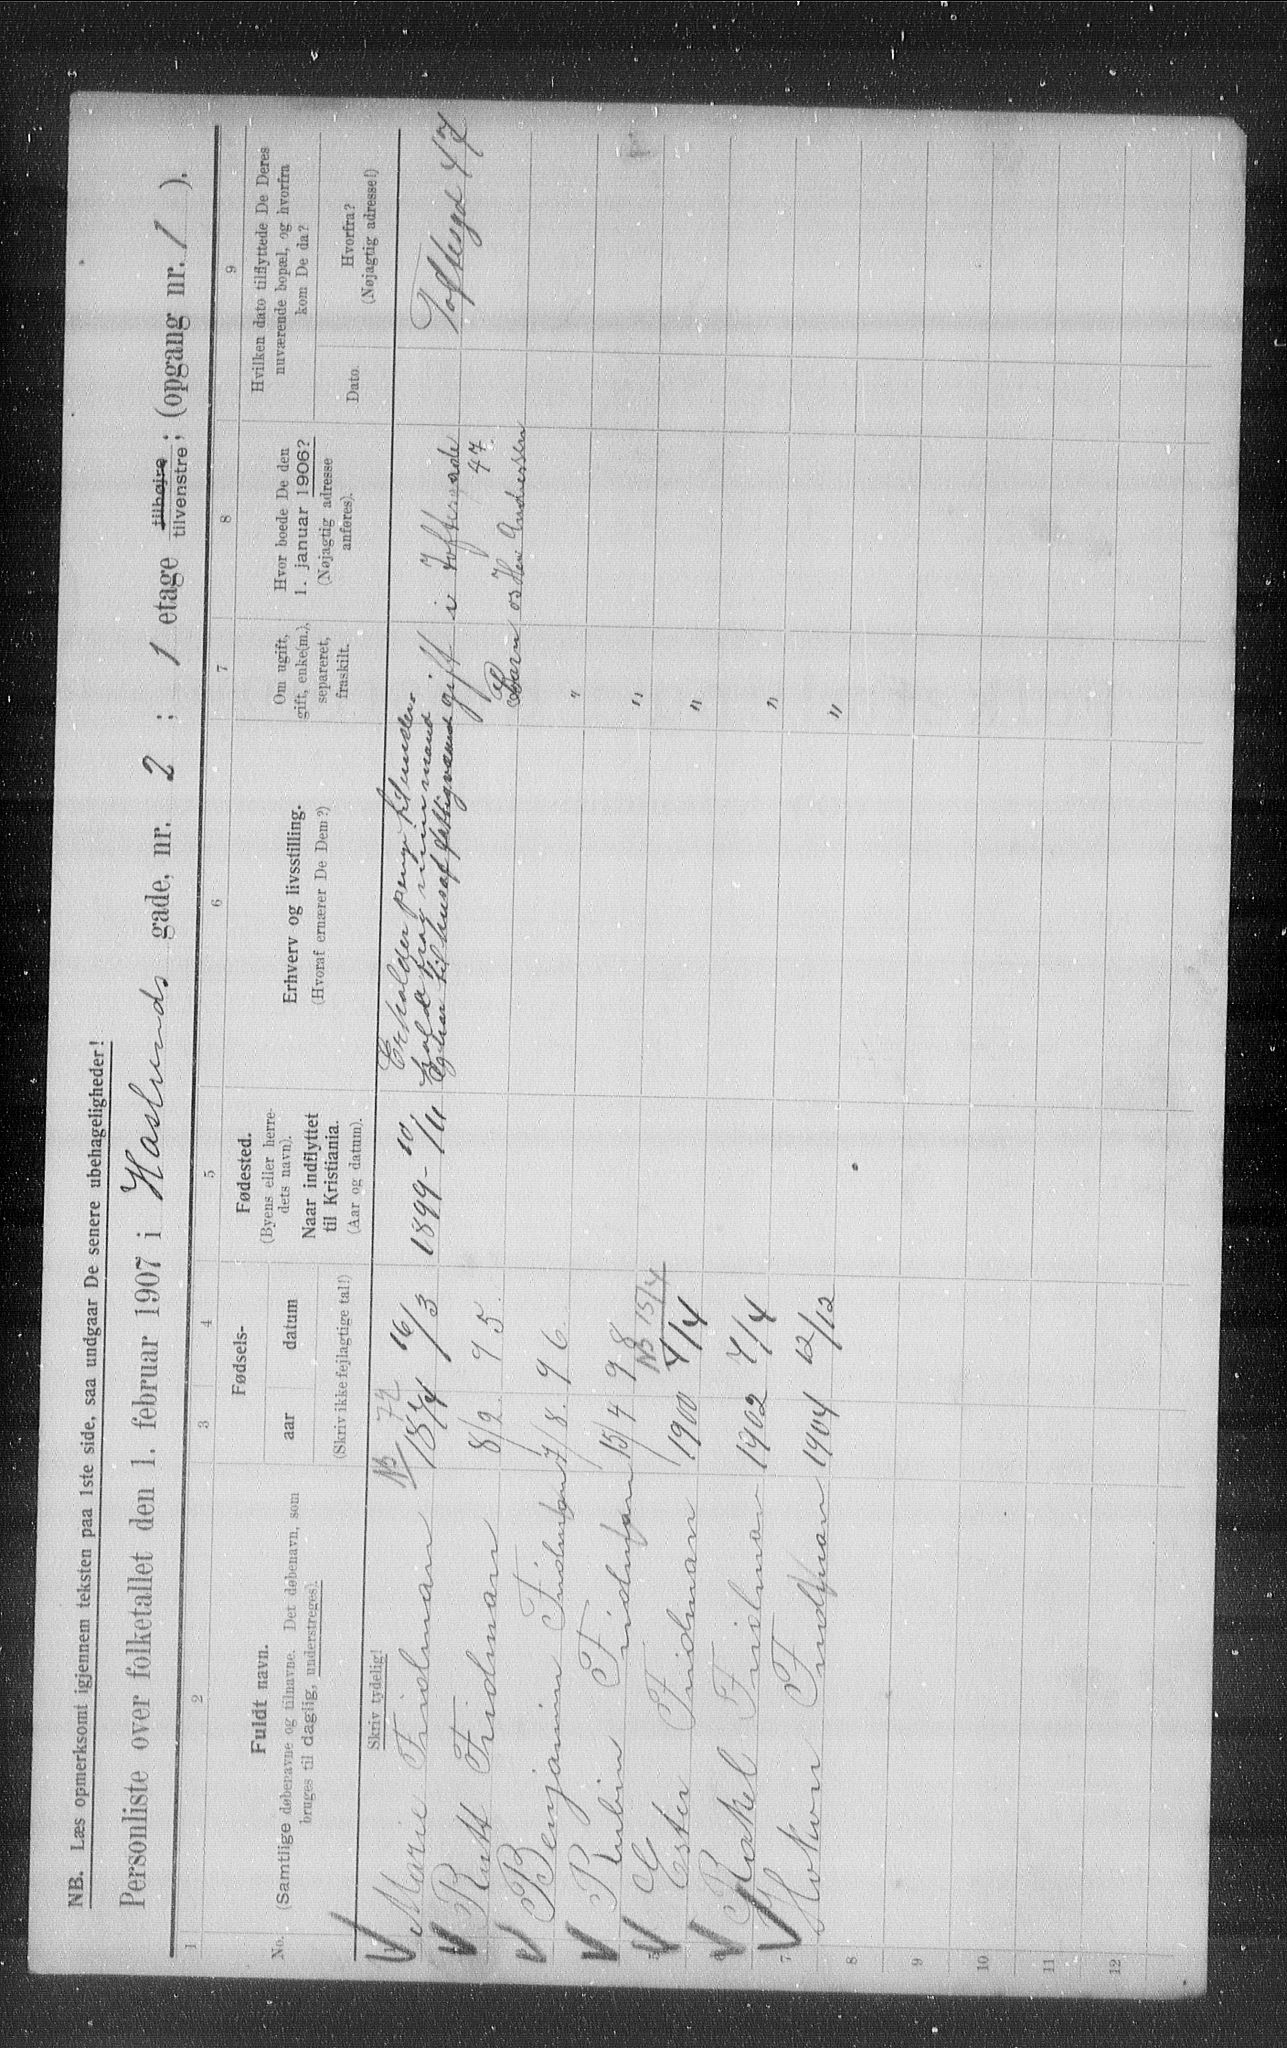 NB. Læs opmerksomt igjennem teksten paa 1ste side, saa undgaar De senere ubehageligheder!
Personliste over folketallet den 1. februar 1907 i Haslunds gade, nr. 2 ; 1 etage tilhøjre tilvenstre; (opgang nr. 1 ).
1 2 3 4 5 6 7 8 9
No.
Fuldt navn.
(Samtlige døbenavne og tilnavne. Det døbenavn, som
bruges til daglig, understreges).
Skriv tydelig!
Fødsels-
aar datum
(Skriv ikke fejlagtige tal!)
Fødested.
(Byens eller herre-
dets navn).
Naar indflyttet
til Kristiania.
(Aar og datum).
Erhverv og livsstilling.
(Hvoraf ernærer De Dem?)
Om ugift,
gift, enke(m.),
separeret,
fraskilt.
Hvor boede De den
1. januar 1906?
(Nøjagtig adresse
anføres).
Hvilken dato tilflyttede De Deres
nuværende bopæl, og hvorfra
kom De da?
Dato.
Hvorfra?
(Nøjagtig adresse!)
Marie Fridman 16/3 1899 - 10/11 gift i Toftesgade 47 Toftesgd 47
Erholder penge til under-
hold fra min mand
Rutt Fridman 8/2. 95. Barn os Hen Andressen
Benjamin Fridman 7/8. 96. "
Rubin Fridman 15/4 98 "
NB 15/4
5 Ester Fridman 1900 4/4 "
Rakel Fridman 1902 7/4 "
7 Hokon Fridman 1904 12/12 "
8
9
10
11
12